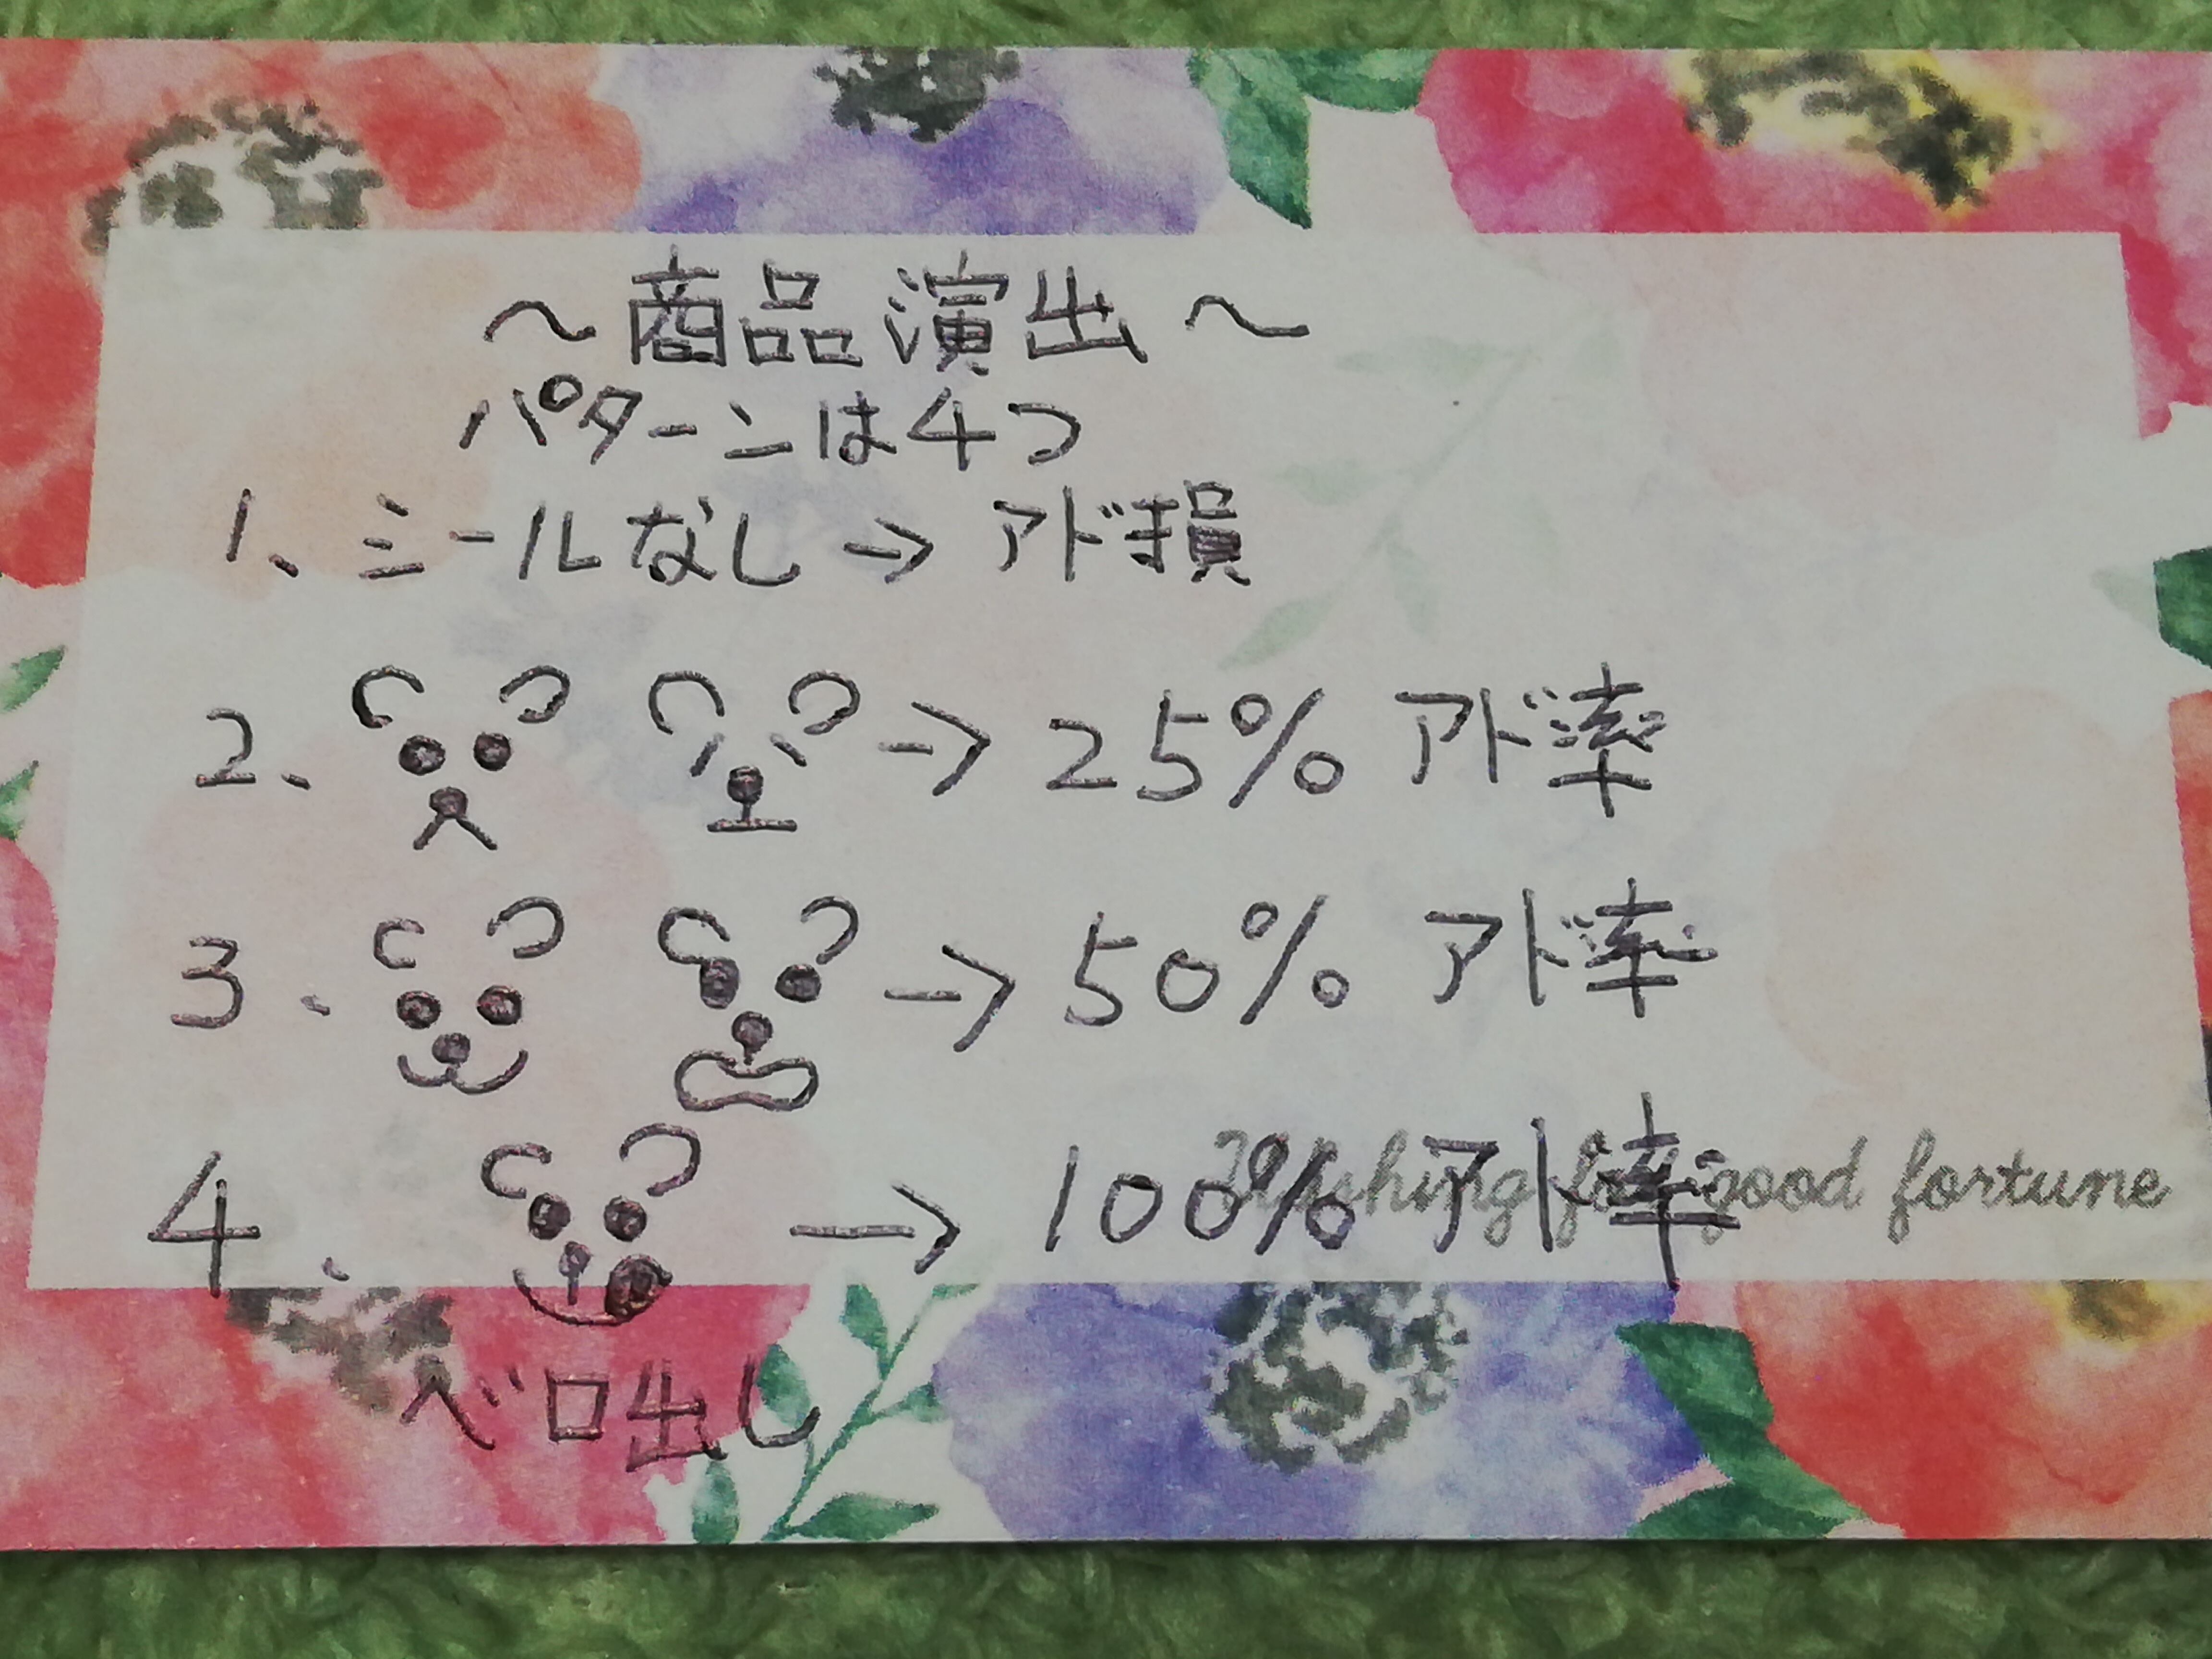 ～商品演出～
パターンは4つ
1、シールなし→アド損
2、→25% アド率
3、→50% アド率
4、→100% アド率
Wishing for good fortune
ベロ出し